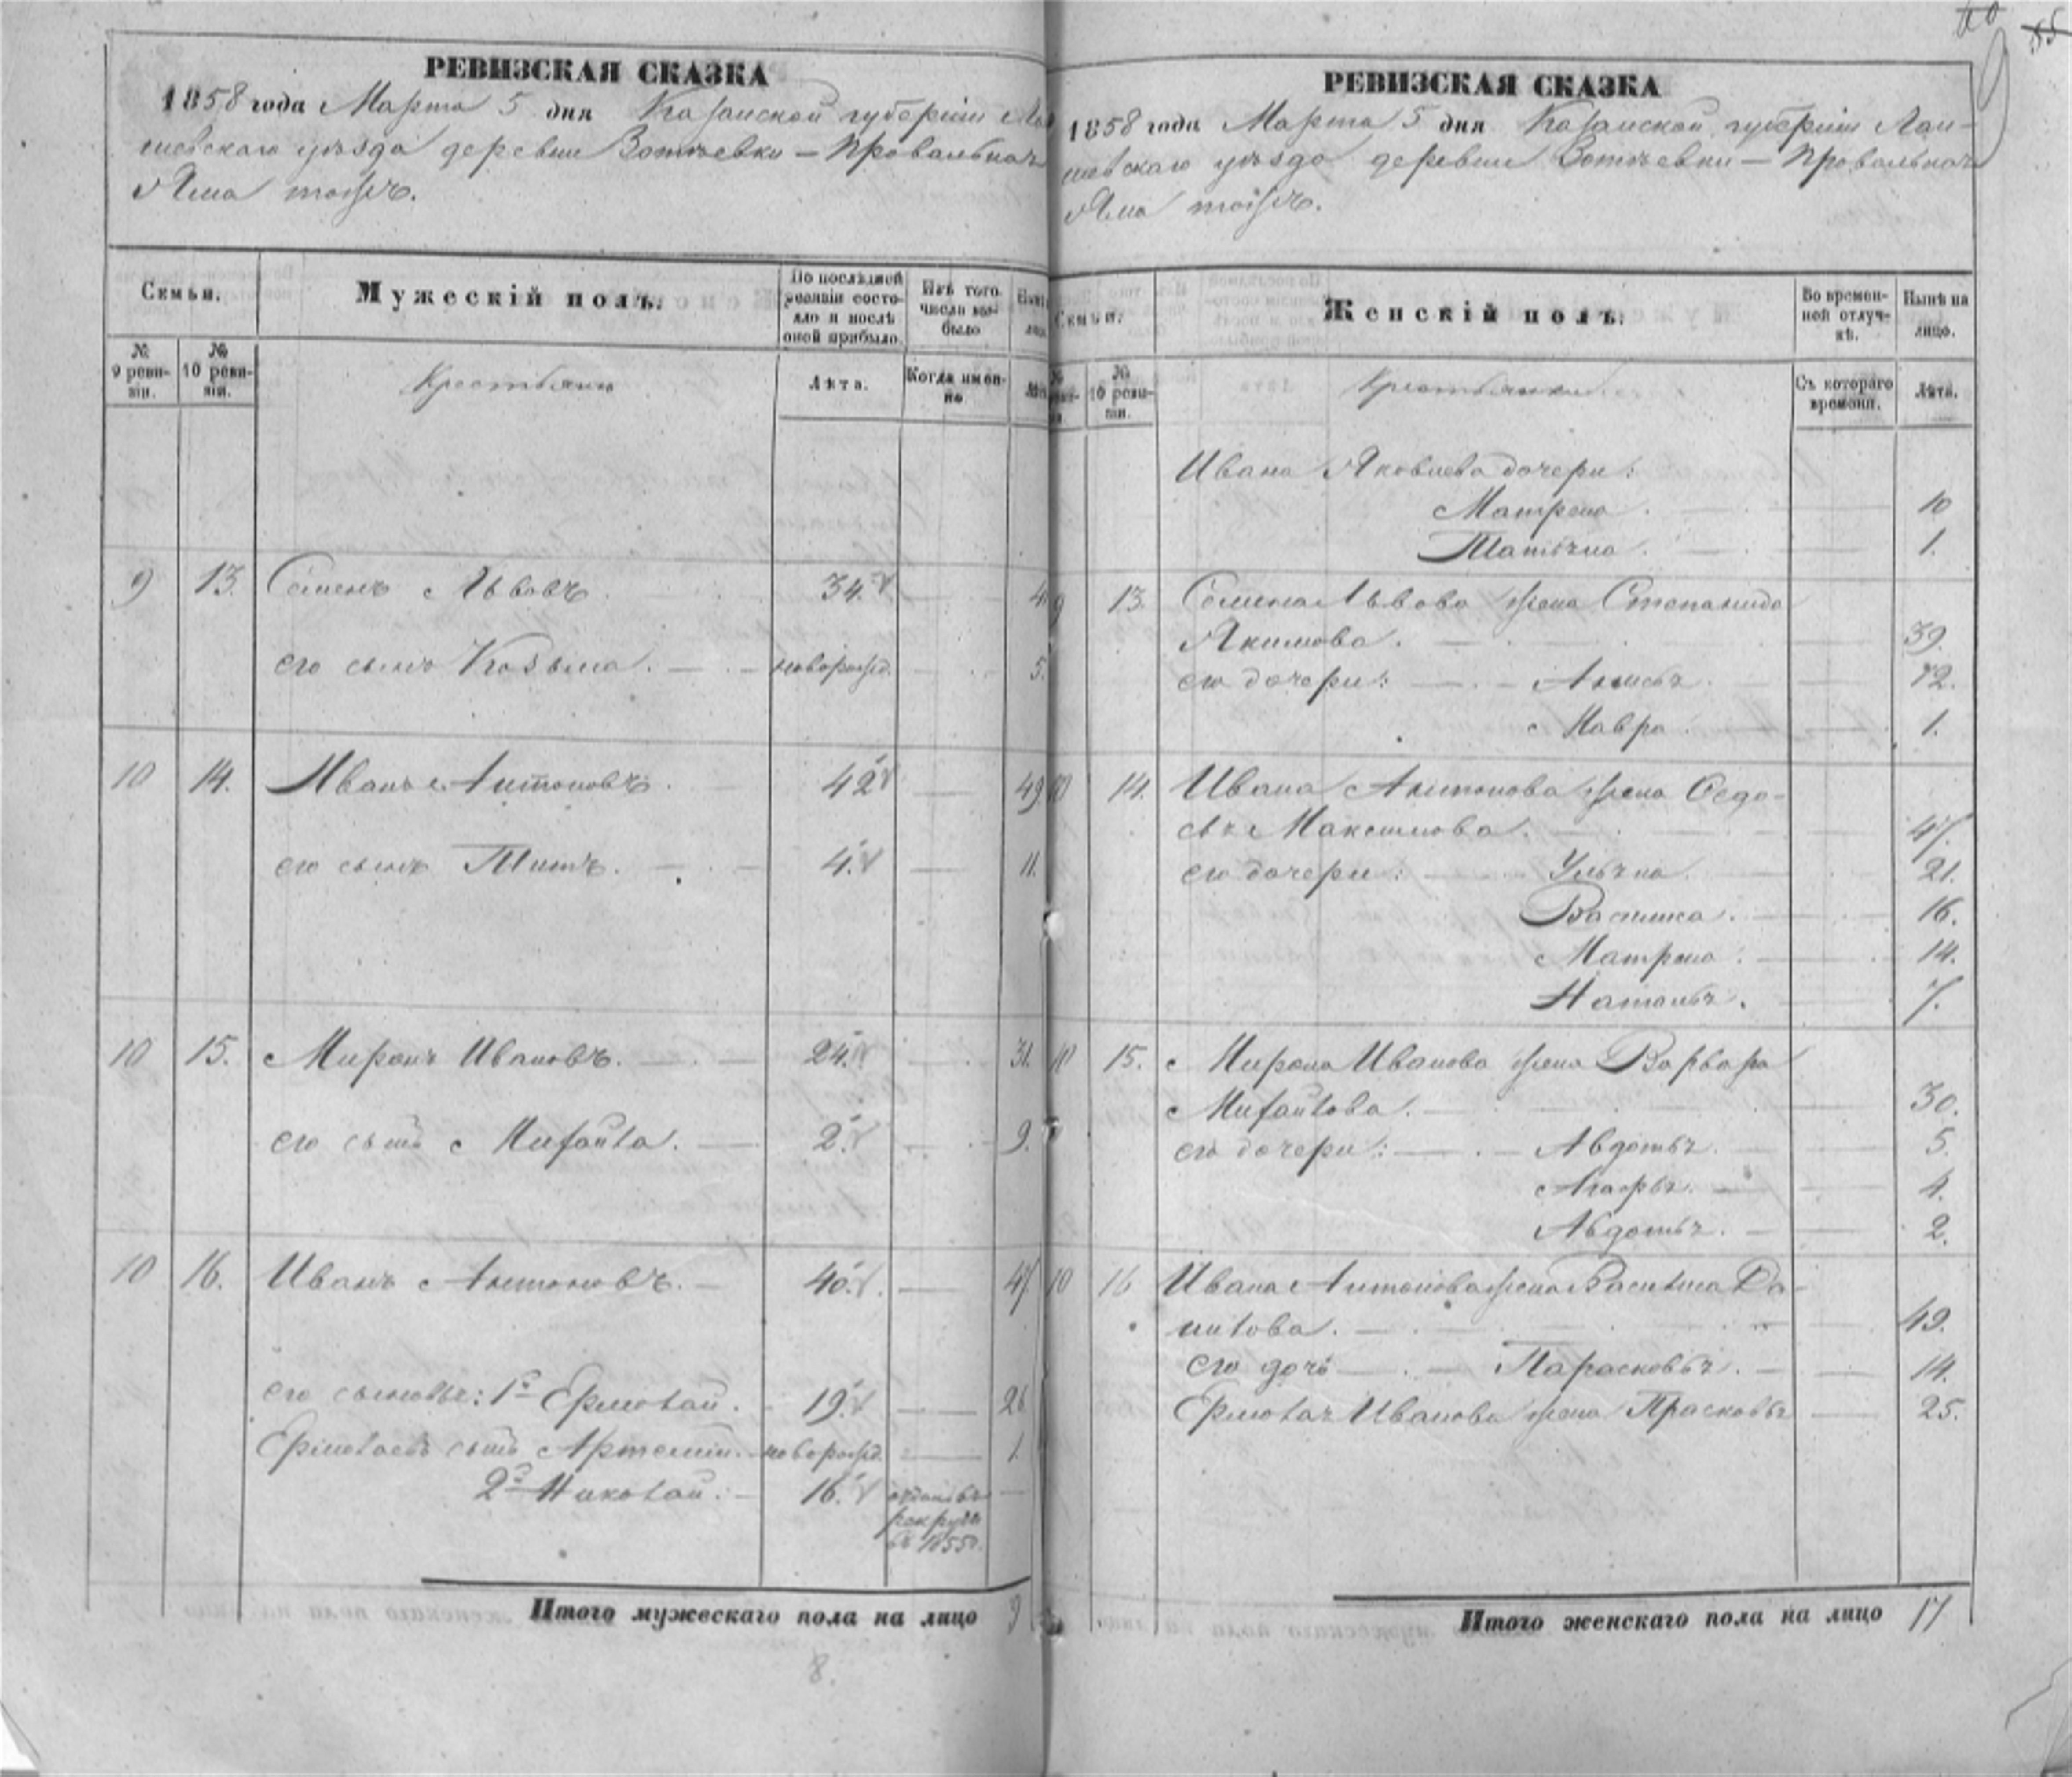 РЕВИЗСКАЯ СКАЗКА
1858 года Марта 5 дня Казанской губерніи Лаи-
шевскаго уѣзда деревни Зотѣевки – Провальная
Яма тожъ.
Семьи.
Мужескій полъ.
По послѣдней
ревизіи состо-
яло и послѣ
оной прибыло.
Изъ того
числа вы-
было
№
9 реви-
зіи.
№
10 реви-
зіи.
Крестьяне
Лѣта.
Когда имен-
но
9 13. Семенъ Львовъ. 34.
его сынъ Козьма. новорожд. 5.
10 14. Иванъ Антоновъ. 42 49
его сынъ Титъ. 4. 11.
10 15. Миронъ Ивановъ. 24. 31.
его сынъ Михайла. 2. 9.
10 16. Иванъ Антоновъ. 40. 47
его сыновья: 1й Ермолай. 19. 26
Ермолаевъ сынъ Артемій. новорожд. 1.
2й Николай. 16. отданъ въ
рекруты
въ 1855г.
Итого мужескаго пола на лицо 9
8.
РЕВИЗСКАЯ СКАЗКА
1858 года Марта 5 дня Казанской губерніи Лаи-
шевскаго уѣзда деревни Зотѣевки – Провальная
Яма тожъ.
Семьи.
Женскій полъ.
Во времен-
ной отлуч-
кѣ.
Нынѣ на
лицо.
№
10 реви-
зіи.
Крестьянки
Съ котораго
времени.
Лѣта.
Ивана Яковлева дочери:
Матрена. 10
Татьяна. 1.
9 13. Семена Львова жена Степанида
Якимова. 39.
его дочери: Анисья. 12.
Мавра. 1.
10 14. Ивана Антонова жена Ѳедо-
сья Максимова. 47.
его дочери: Ульяна. 21.
Василиса. 16.
Матрена. 14.
Наталья. 7.
10 15. Мирона Иванова жена Варвара
Михайлова. 30.
его дочери: Авдотья. 5.
Агафья. 4.
Авдотья. 2.
10 16 Ивана Антонова жена Василиса Да-
нилова. 49.
его дочь Парасковья. 14.
Ермолая Иванова жена Прасковья 25.
Итого женскаго пола на лицо 17